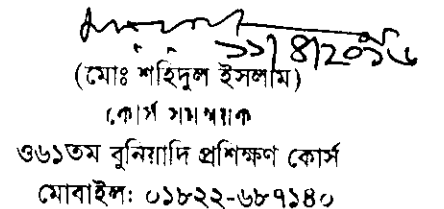 ১১/৪/২০১৬
(মোঃ শহিদুল ইসলাম)
কোর্স সমন্বয়ক
৩৬১তম বুনিয়াদি প্রশিক্ষণ কোর্স
মোবাইল: ০১৮২২-৬৮৭১৪০